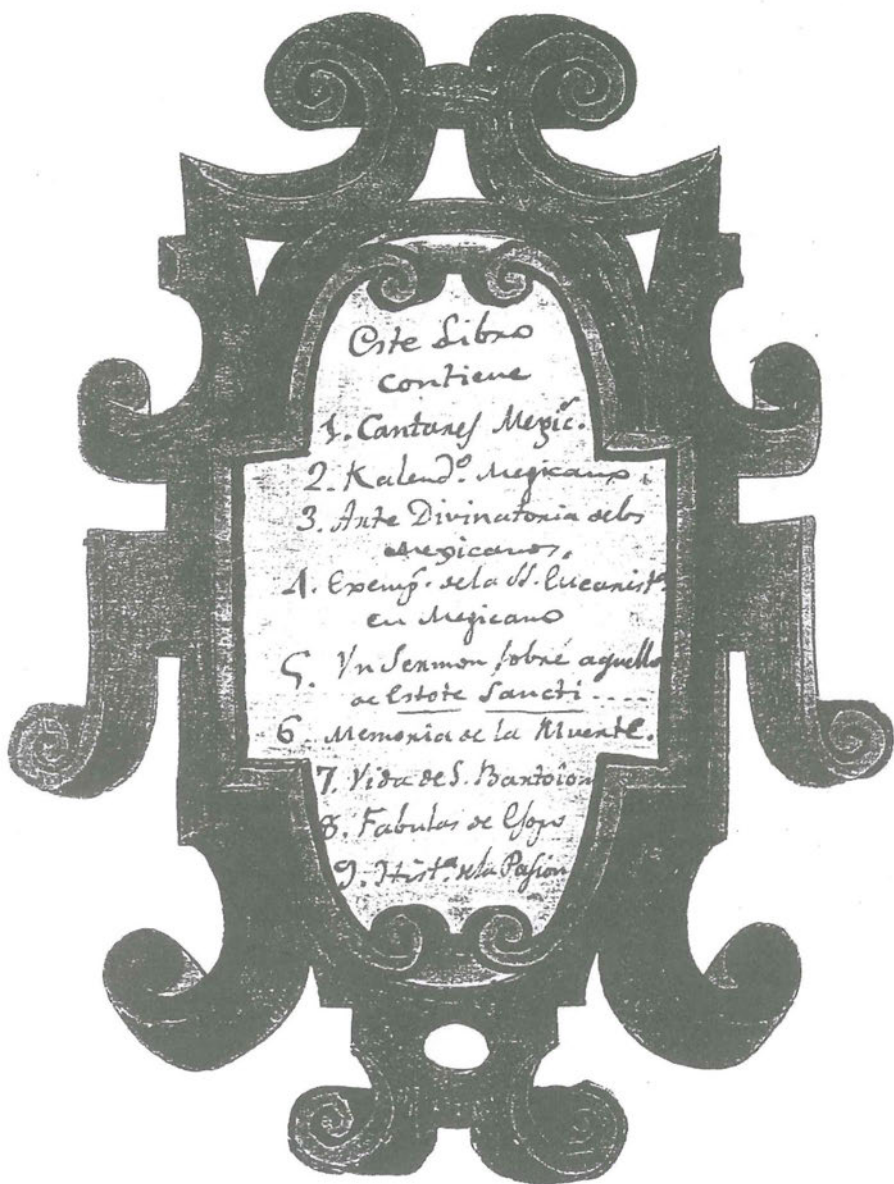 Este Libro
contiene
1. Cantares Mexic.ˢ
2. Kalend.º Megicano.
3. Arte Divinatoria de los
Mexicanos.
4. Exemp.ˢ de la SS. Eucarist.ª
en Megicano
5. Vn Sermon sobre aquello
de Estote Sancti ....
6. Memoria de la Muerte.
7. Vida de S. Bartolom
8. Fabulas de Esopo
9. Hist.ª de la Pasion